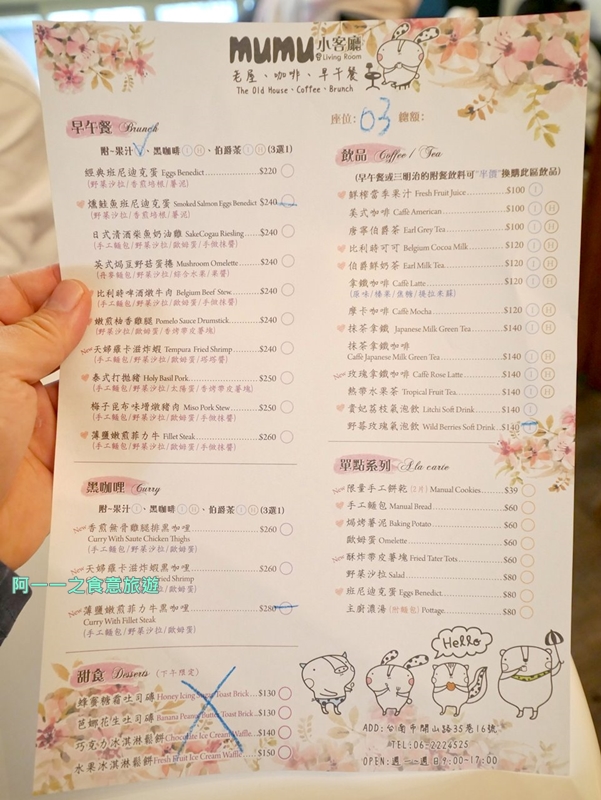 mumu 小客廳
Living Room
老屋、咖啡、早午餐
The Old House、Coffee、Brunch
座位: 03 總額:
早午餐 Brunch
附~果汁 I、黑咖啡 I H、伯爵茶 I H (3選1)
經典班尼迪克蛋 Eggs Benedict $220
(野菜沙拉/香煎培根/薯泥)
燻鮭魚班尼迪克蛋 Smoked Salmon Eggs Benedict $240
(野菜沙拉/香煎培根/薯泥)
日式清酒柴魚奶油雞 SakeCogau Riesling $240
(手工麵包/野菜沙拉/歐姆蛋/手做抹醬)
英式焗豆野菇蛋捲 Mushroom Omelette $240
(丹麥麵包/野菜沙拉/綜合水果/果醬)
比利時啤酒燉牛肉 Belgium Beef Stew $240
(手工麵包/野菜沙拉/歐姆蛋/手做抹醬)
嫩煎柚香雞腿 Pomelo Sauce Drumstick $240
(野菜沙拉/歐姆蛋/香烤帶皮薯塊)
New 天婦羅卡滋炸蝦 Tempura Fried Shrimp $240
(手工麵包/野菜沙拉/歐姆蛋/塔塔醬)
泰式打拋豬 Holy Basil Pork $250
(手工麵包/野菜沙拉/太陽蛋/香烤帶皮薯塊)
梅子昆布味增燉豬肉 Miso Pork Stew $250
(手工麵包/野菜沙拉/歐姆蛋/手做抹醬)
薄鹽嫩煎菲力牛 Fillet Steak $260
(手工麵包/野菜沙拉/歐姆蛋/手做抹醬)
黑咖哩 Curry
附~果汁 I、黑咖啡 I H、伯爵茶 I H (3選1)
New 香煎無骨雞腿排黑咖哩 $260
Curry With Saute Chicken Thighs
(手工麵包/野菜沙拉/歐姆蛋)
New 天婦羅卡滋炸蝦黑咖哩 $260
Fried Shrimp
(手工麵包/野菜沙拉/歐姆蛋)
New 薄鹽嫩煎菲力牛黑咖哩 $280
Curry With Fillet Steak
(手工麵包/野菜沙拉/歐姆蛋)
甜食 Desserts (下午限定)
蜂蜜糖霜吐司磚 Honey Icing Sugar Toast Brick $130
芭娜花生吐司磚 Banana Peanut Butter Toast Brick $130
巧克力冰淇淋鬆餅 Chocolate Ice Cream Waffle $140
水果冰淇淋鬆餅 Fresh Fruit Ice Cream Waffle $150
飲品 Coffee / Tea
(早午餐或三明治的附餐飲料可"半價"換購此區飲品)
鮮榨當季果汁 Fresh Fruit Juice $100 I
美式咖啡 Caffè American $100 I H
唐寧伯爵茶 Earl Grey Tea $100 I H
比利時可可 Belgium Cocoa Milk $120 I H
伯爵鮮奶茶 Earl Milk Tea $120 I H
拿鐵咖啡 Caffè Latte $120 I H
(原味/榛果/焦糖/提拉米蘇)
摩卡咖啡 Caffè Mocha $120 I H
抹茶拿鐵 Japanese Milk Green Tea $140 I H
抹茶拿鐵咖啡
Caffè Japanese Milk Green Tea $140 I H
New 玫瑰拿鐵咖啡 Caffè Rose Latte $140 I H
熱帶水果茶 Tropical Fruit Tea $140 I H
貴妃荔枝氣泡飲 Litchi Soft Drink $140 I
野莓玫瑰氣泡飲 Wild Berries Soft Drink $140 I
單點系列 A la carte
New 限量手工餅乾 (2片) Manual Cookies $39
手工麵包 Manual Bread $60
焗烤薯泥 Baking Potato $60
歐姆蛋 Omelette $60
New 酥炸帶皮薯塊 Fried Tater Tots $60
野菜沙拉 Salad $80
班尼迪克蛋 Eggs Benedict $80
主廚濃湯 (附麵包) Pottage $80
Hello
ADD:台南市開山路35巷16號
TEL:06-2224525
OPEN:週二~週日9:00-17:00
阿一一之食意旅遊